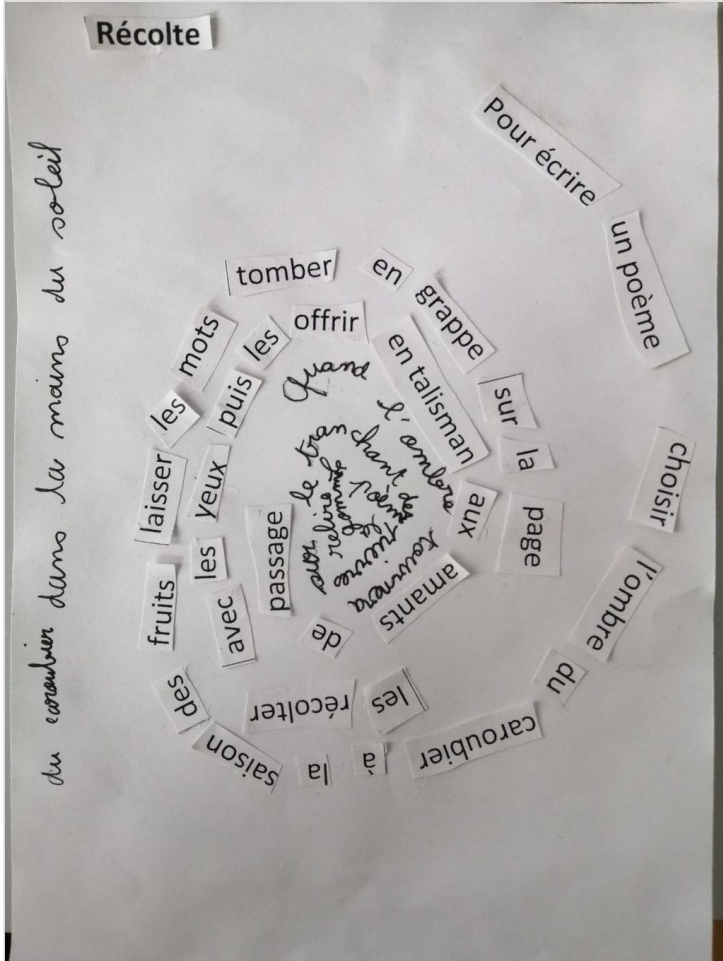 Récolte
Pour écrire
un poème
choisir
l'ombre
du
caroubier
à
la
saison
des
fruits
laisser
les
mots
tomber
en
grappe
sur
la
page
les
récolter
avec
les
yeux
puis
les
offrir
en talisman
aux
amants
de
passage
Quand l'ombre tournera sur le tranchant des pierre relire le poème
du caroubier dans la mains du soleil